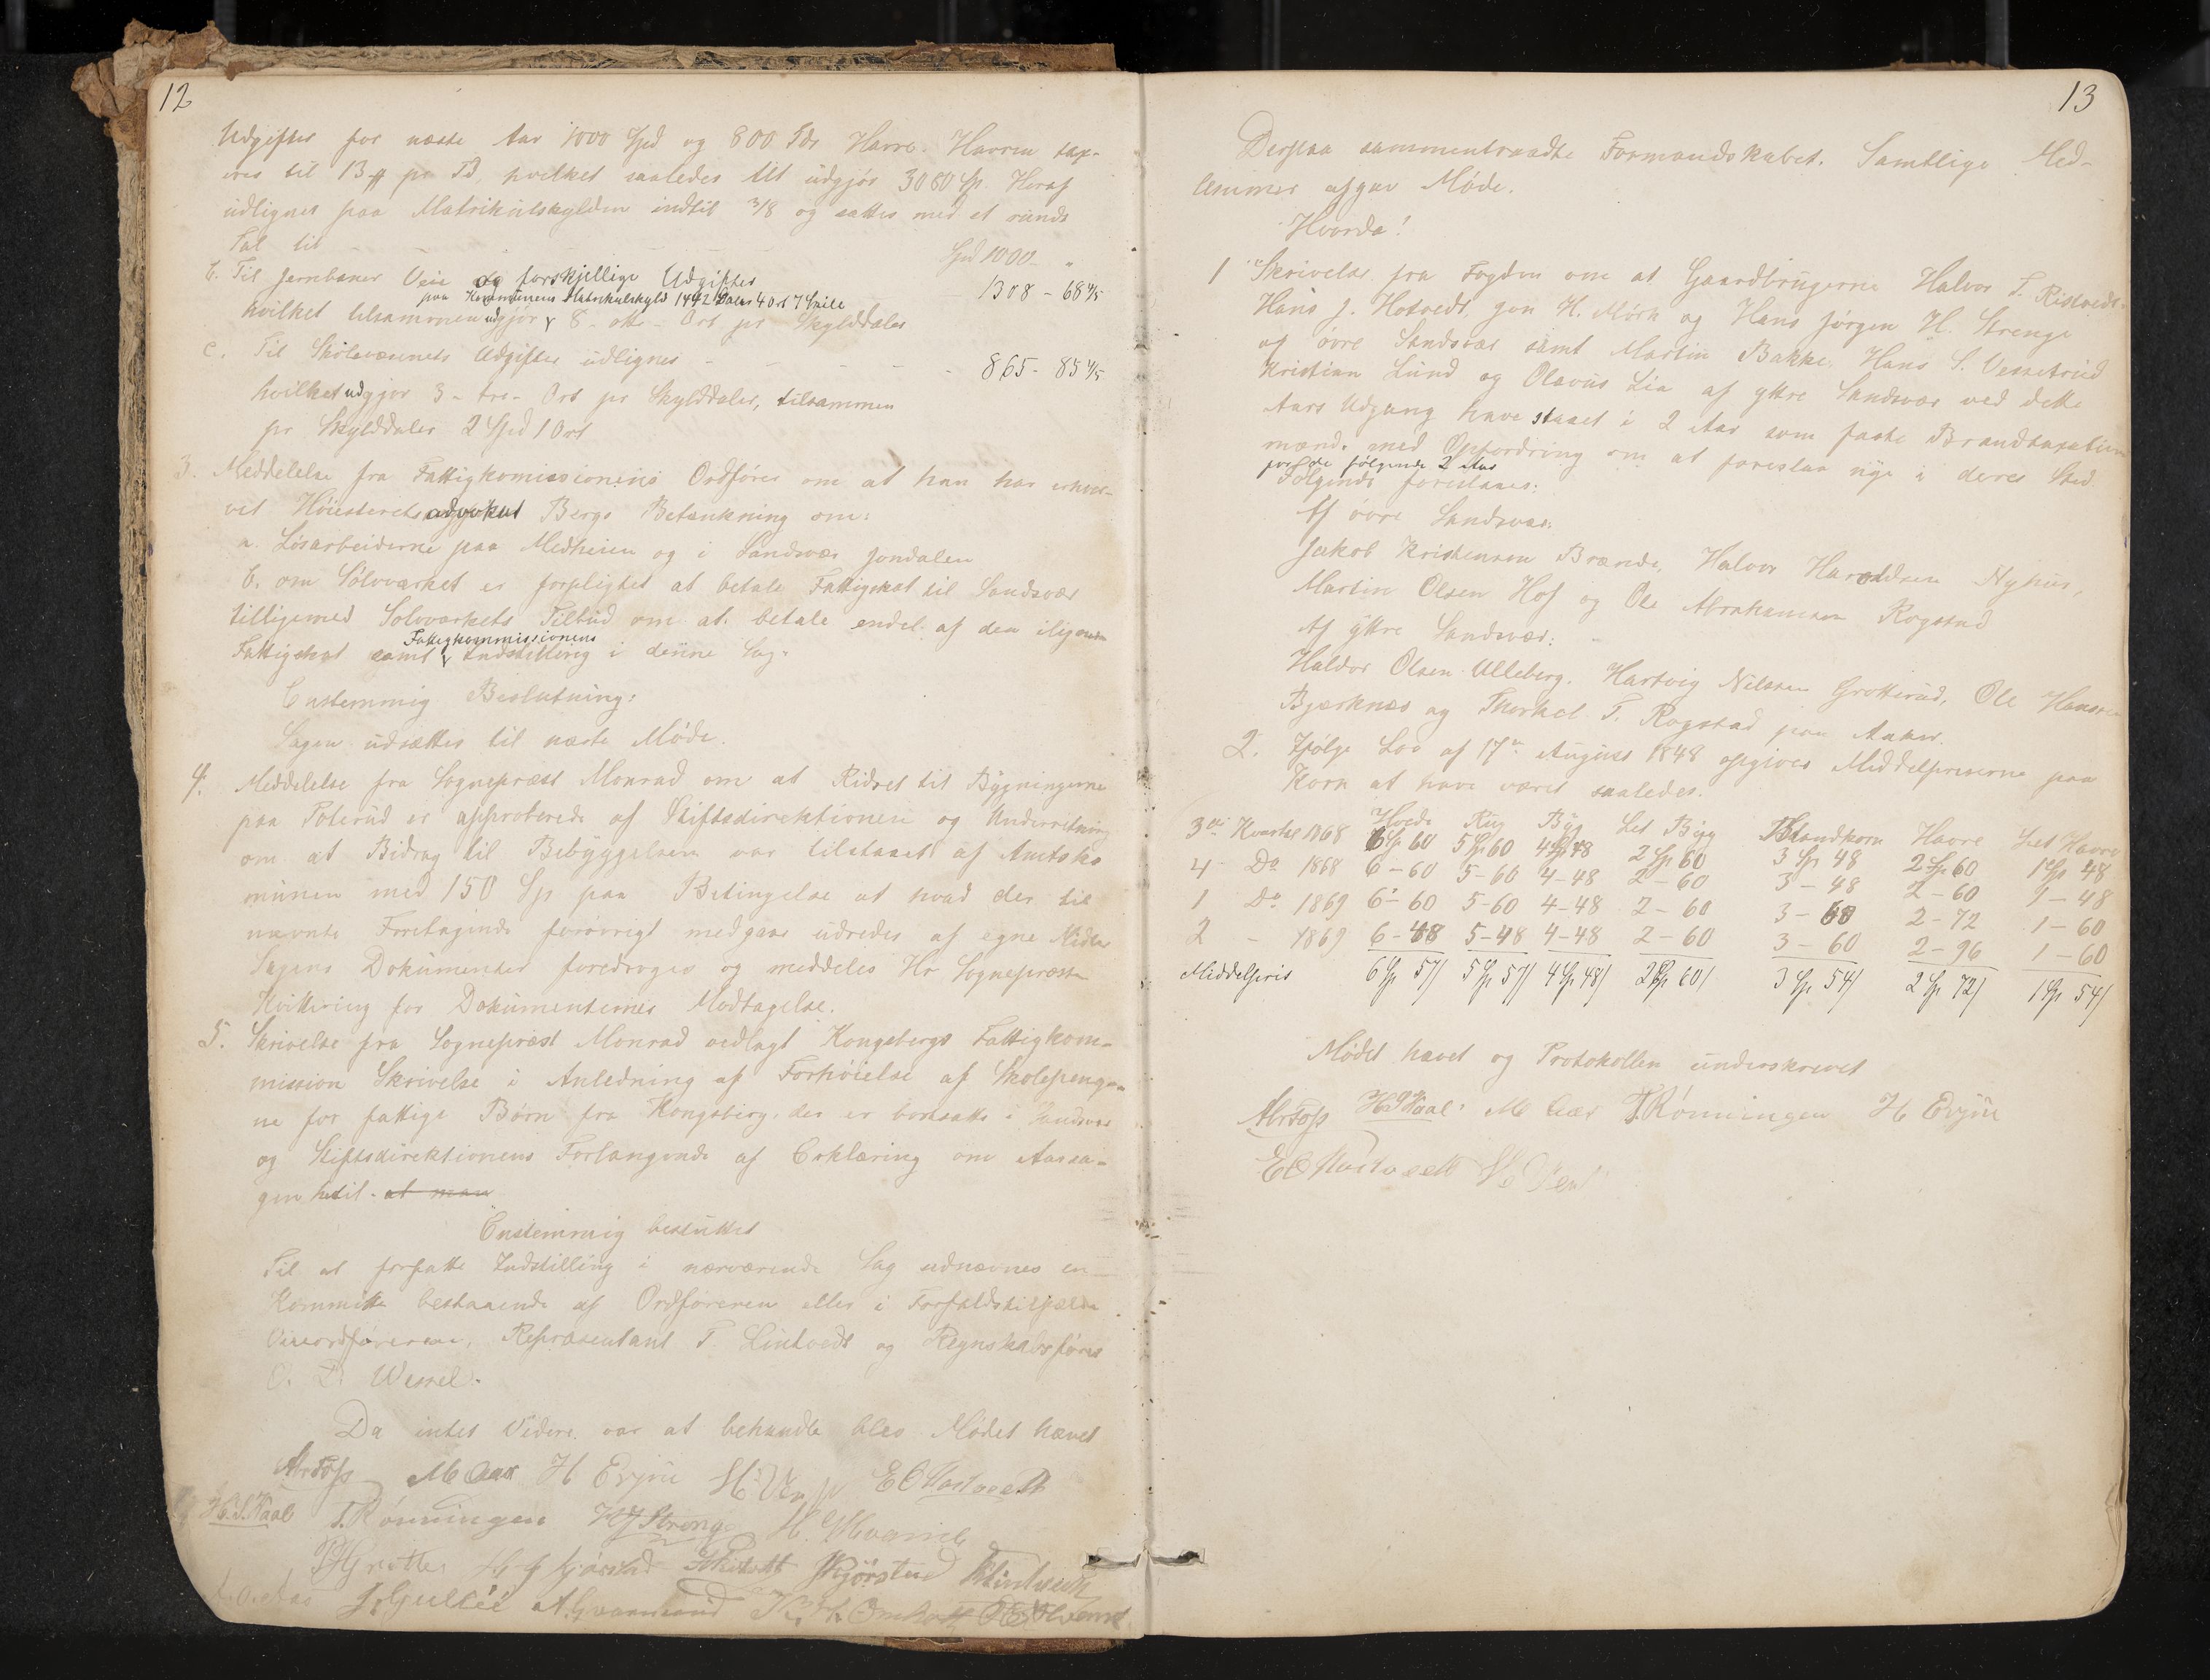 12
Udgifter for næste Aar 1000 Spd og 800 Tdr Havre. Havren tax-
eres til 13 ₰ pr Td, hvilket saaledes Alt udgjør 3080 Sp. Heraf
udlignes paa Matrikulskylden indtil 3/8 og sættes med et rundt
Tal til - - - - - - Spd 1000 "
b. Til Jernbaner Veie og forskjellige Udgifter 1308 - 68 4/5
paa Kommunens Matrikulskyld 1442 Daler 4 Ort 7 Skill
hvilket tilsammen udgjør 8 - otte - Ort pr Skylddaler
c. Til Skolevæsenets Udgifter udlignes - - - - - 865 - 85 4/5
hvilket udgjør 3 - tre - Ort pr Skylddaler, tilsammen
pr Skylddaler 2 Spd 1 Ort
3. Meddelelse fra Fattigkomissionens Ordfører om at han har erhver-
vet Høiesteretsadvokat Bergs Betænkning om:
a. Løsarbeiderne paa Medheien og i Sandsvær Jondalen
b. om Sølvværket er forpligtet at betale Fattigskat til Sandsvær
tilligemed Sølvværkets Tilbud om at betale endel af den ilignede
Fattigkommissionens
Fattigskat samt Indstilling i denne Sag.
Enstemmig Beslutning:
Sagen udsættes til næste Møde.
4. Meddelelse fra Sognepræst Monrad om at Ridset til Bygningerne
paa Toterud er approberede af Stiftsdirektionen og Underretning
om at Bidrag til Bebyggelsen var tilstaaet af Amtsko
munen med 150 Sp paa Betingelse at hvad der til
nævnte Foretagende forøvrigt medgaar udredes af egne Midler
Sagens Dokumenter foredroges og meddeles Hr Sognepræsten
Kvittering for Dokumenternes Modtagelse.
5. Skrivelse fra Sognepræst Monrad vedlagt Kongsbergs Fattigkom-
mission Skrivelse i Anledning af Forhøielse af Skolepenge-
ne for fattige Børn fra Kongsberg, der er bortsatte i Sandsvær
og Stiftsdirektionens Forlangende af Erklæring om Aarsa-
gen hertil. at man
Enstemmig besluttet
Til at forfatte Indstilling i nærværende Sag udnævnes en
Kommitte bestaaende af Ordføreren eller i Forfaldstilfælde
Viceordføreren, Repræsentant T. Lintvedt og Regnskabsfører
O. T. Wessel.
Da intet Videre var at behandle blev Mødet hævet
AbrToss M Aas H Evju E O Hostvedt
H.S. Waal T. Rønningen HJ Strenge H. Hvamb
PHGrette Kjørstad TLintvedt
J. Gullie
13
Derpaa sammentraadte Formandskabet. Samtlige Med-
lemmer afgav Møde.
Hvorda!
1 Skrivelse fra Fogden om at Gaardbrugerne Halvor T. Ristvedt
Hans J. Hotvedt, Jen H. Mørk og Hans Jørgen H. Strenge
af øvre Sandsvær samt Martin Bakke, Hans S. Vessetrud
Kristian Lund og Olavus Lia af yttre Sandsvær ved dette
Aars Udgang have staaet i 2 Aar som faste Brandtaxations
mænd, med Opfordring om at foreslaa nye i deres Sted
for de følgende 2 Aar
Følgende foreslaaes:
Af øvre Sandsvær:
Jakob Kristensen Brænde, Halvor Haraldsen Nyhus,
Martin Olsen Hof og Ole Abrahamsen Rogstad
Af yttre Sandsvær:
Haldor Olsen Ulleberg. Hartvig Nilssen Grotterud, Ole Hansen
Bjerknes og Thorkel T. Rogstad paa Aaker.
2. Ifølge Lov af 17de August 1848 opgives Middelpriserne paa
Korn at have været saaledes.
Hvede Rug Byg Let Byg Blandkorn Havre Let Havre
3die Kvartal 1868 6 Sp 60 5 Sp 60 4 Sp 48 2 Sp 60 3 Sp 48 2 Sp 60 1 Sp 48
4 Do 1868 6 - 60 5 - 60 4 - 48 2 - 60 3 - 48 2 - 60 1 - 48
1 Do 1869 6 - 60 5 - 60 4 - 48 2 - 60 3 - 60 2 - 72 1 - 60
2 - 1869 6 - 48 5 - 48 4 - 48 2 - 60 3 - 60 2 - 96 1 - 60
Middelpris 6 Sp 57/ 5 Sp 57/ 4 Sp 48/ 2 Sp 60/ 3 Sp 54/ 2 Sp 72/ 1 Sp 54/
Mødet hævet og Protokollen underskrevet
AbrToss H.S. Waal M Aas T. Rønningen H Evju
E O Hostvedt